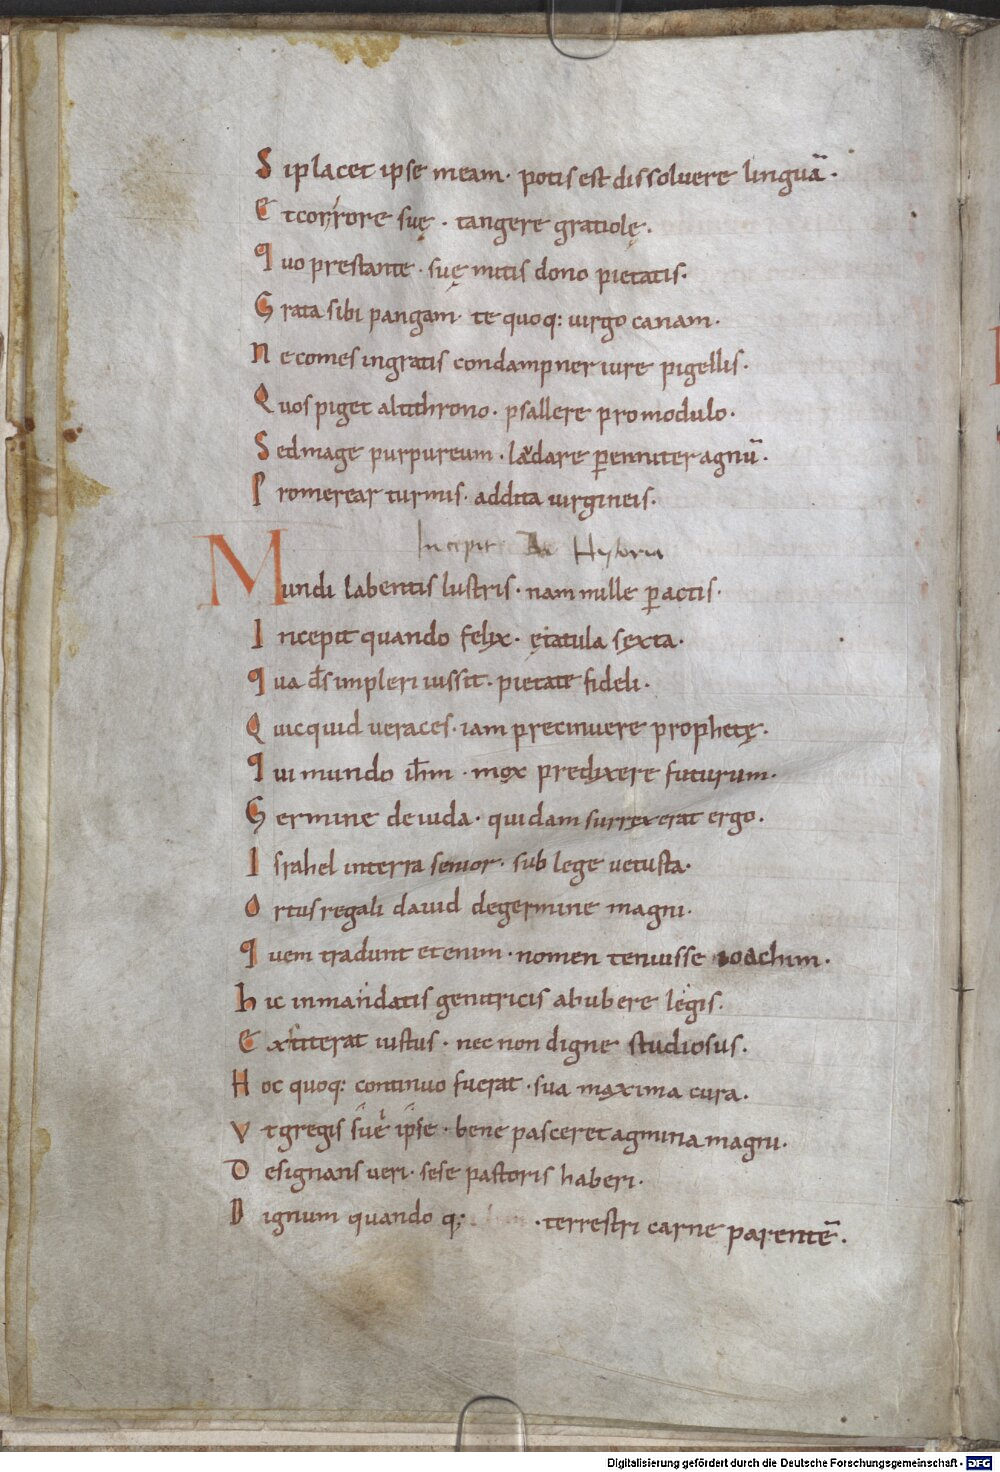 Siplacet ipse meam · potis est dissoluere linguā ·
Et cor rore suę · tangere gratiolę ·
Quo prestante · suę mitis dono pietatis ·
Grata sibi pangam · te quoq: uirgo canam ·
Ne comes ingratis condampner iure pigellis ·
Quos piget altithrono · psallere promodulo ·
Sed mage purpureum · laudare ꝑenniter agnū ·
Promerear turmis · addita uirgineis ·
Incipit Hystoria
Mundi labentis lustris · nam mille ꝑactis ·
Incepit quando felix · ętatula sexta ·
Qua d̄s impleri iussit · pietate fideli ·
Quicquid ueraces · iam precinuere prophetę ·
Qui mundo ih̄m · mox predixere futurum ·
Germine deiuda · quidam surrexerat ergo ·
Israhel interra senior · sub lege uetusta ·
Ortus regali dauid degermine magni ·
Quem tradunt etenim · nomen tenuisse ioachim ·
Hic in mandatis genitricis abubere legis ·
Extiterat iustus · nec non digne studiosus ·
Hoc quoq: continuo fuerat · sua maxima cura ·
Vt gregis sue ipse · bene pasceret agmina magni ·
Designans ueri · sese pastoris haberi ·
Dignum quando q; · terrestri carne parentē ·
Digitalisierung gefördert durch die Deutsche Forschungsgemeinschaft - DFG